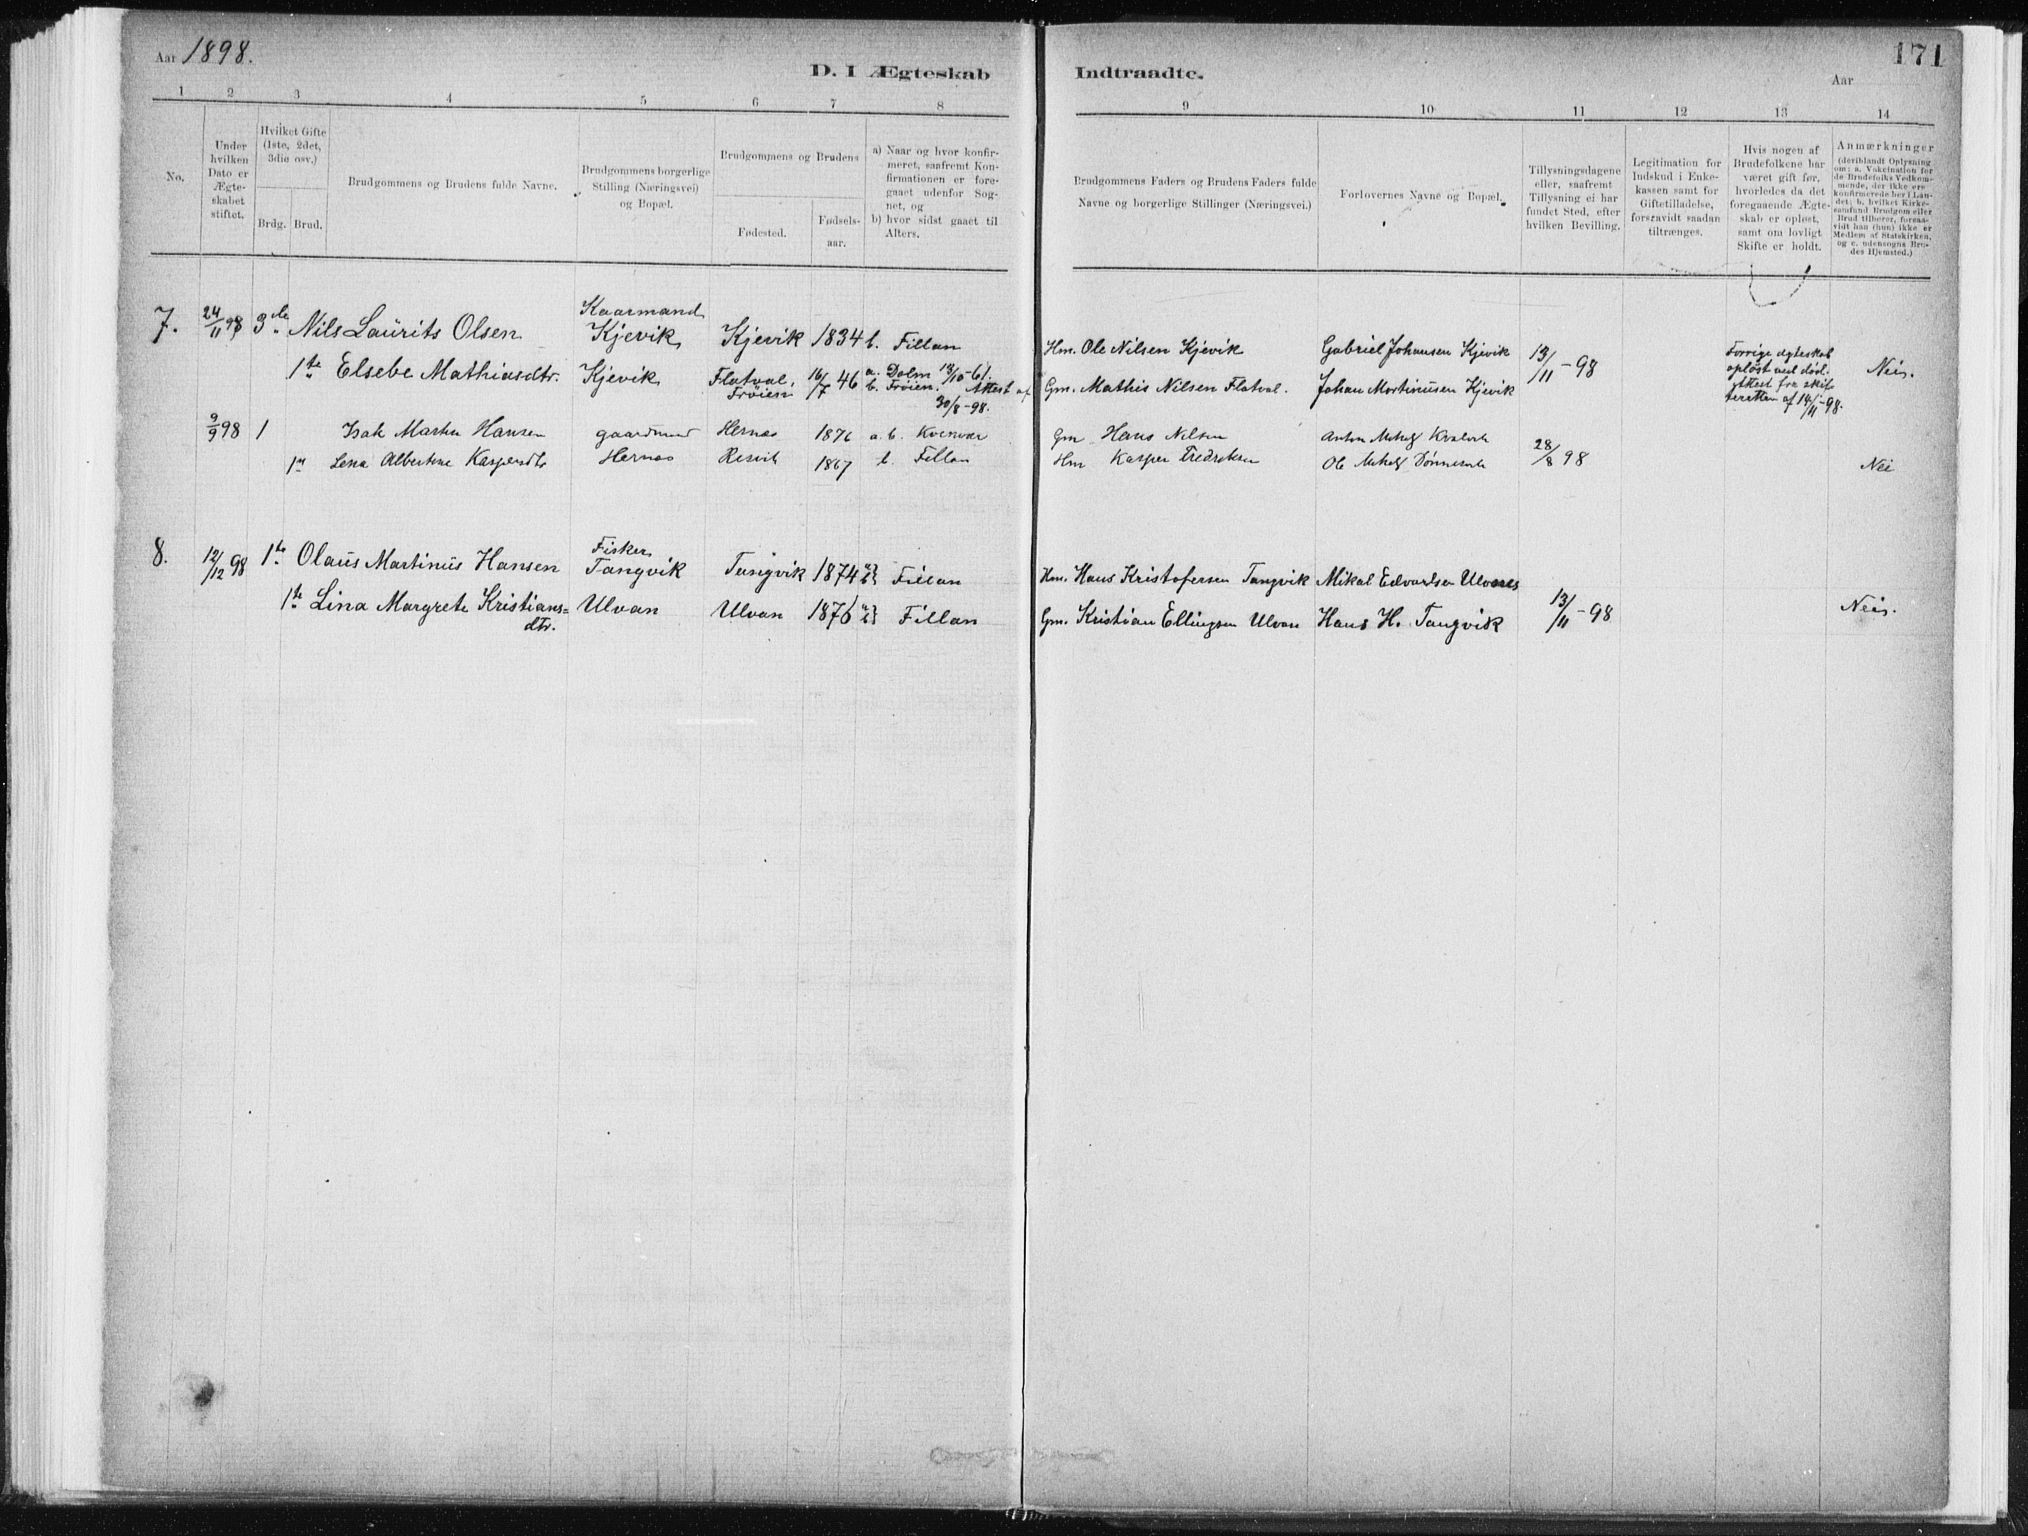 Aar 1898.
171
D. I Ægteskab
Indtraadte.
Aar
1 2 3 4 5 6 7 8
9 10 11 12 13 14
No.
Under
hvilken
Dato er
Ægte-
skabet
stiftet.
Hvilket Gifte
(1ste, 2det,
3die osv.)
Brdg. Brud.
Brudgommens og Brudens fulde Navne.
Brudgommens borgerlige
Stilling (Næringsvei)
og Bopæl.
Brudgommens og Brudens
Fødested.
Fødsels-
aar.
a) Naar og hvor konfir-
meret, saafremt Kon-
firmationen er fore-
gaaet udenfor Sog-
net, og
b) hvor sidst gaaet til
Alters.
Brudgommens Faders og Brudens Faders fulde
Navne og borgerlige Stillinger (Næringsvei.)
Forlovernes Navne og Bopæl.
Tillysningsdagene
eller, saafremt
Tillysning ei har
fundet Sted, efter
hvilken Bevilling.
Legitimation for
Indskud i Enke-
kassen samt for
Giftetilladelse,
forsaavidt saadan
tiltrænges.
Hvis nogen af
Brudefolkene har
været gift før,
hvorledes da det
foregaaende Ægte-
skab er opløst,
samt om lovligt
Skifte er holdt.
Anmærkninger
(deriblandt Oplysning
om: a. Vakcination for
de Brudefolks Vedkom-
mende, der ikke ere
konfirmerede her i Lan-
det; b. hvilket Kirke-
samfund Brudgom eller
Brud tilhører, forsaa-
vidt han (hun) ikke er
Medlem af Statskirken,
og c. udensogns Bru-
des Hjemsted.)
7. 24/11 98 3de Nils Laurits Olsen Kaarmand
Kjevik Kjevik 1834 b. Fillan Hm. Ole Nilsen Kjevik Gabriel Johansen Kjevik 13/11-98
1te Elsebe Mathiasdtr. Kjevik Flatval, Frøien 16/7 46 a. Dolm 13/10-61.
b. Frøien. Attest af
30/8-98.
Gm. Mathis Nilsen Flatval. Johan Martinusen Kjevik
Forrige ægteskab
opløst ved død.
Attest fra skif-
teretten af 14/11-98.
Nei.
9/9 98 1 Isak Martin Hansen gaardmand Hernæs 1876 a. b. Kvenvær Gm Hans Nilsen Anton
1te Lena Albertine Kaspersdtr Hernæs 1867 b. Fillan Hm Kasper Fredriksen Ole 28/8 98 Nei
8. 12/12 98 1te Olaus Martinus Hansen Fisker
Tangvik Tangvik 1874 a} b} Fillan Hm. Hans Kristofersen Tangvik Mikal Edvardsen Ulvnes
1te Lina Margrete Kristians=
dtr. Ulvan Ulvan 1876 a} b} Fillan Gm. Kristian Ellingsen Ulvan Hans H. Tangvik 13/11-98 Nei.